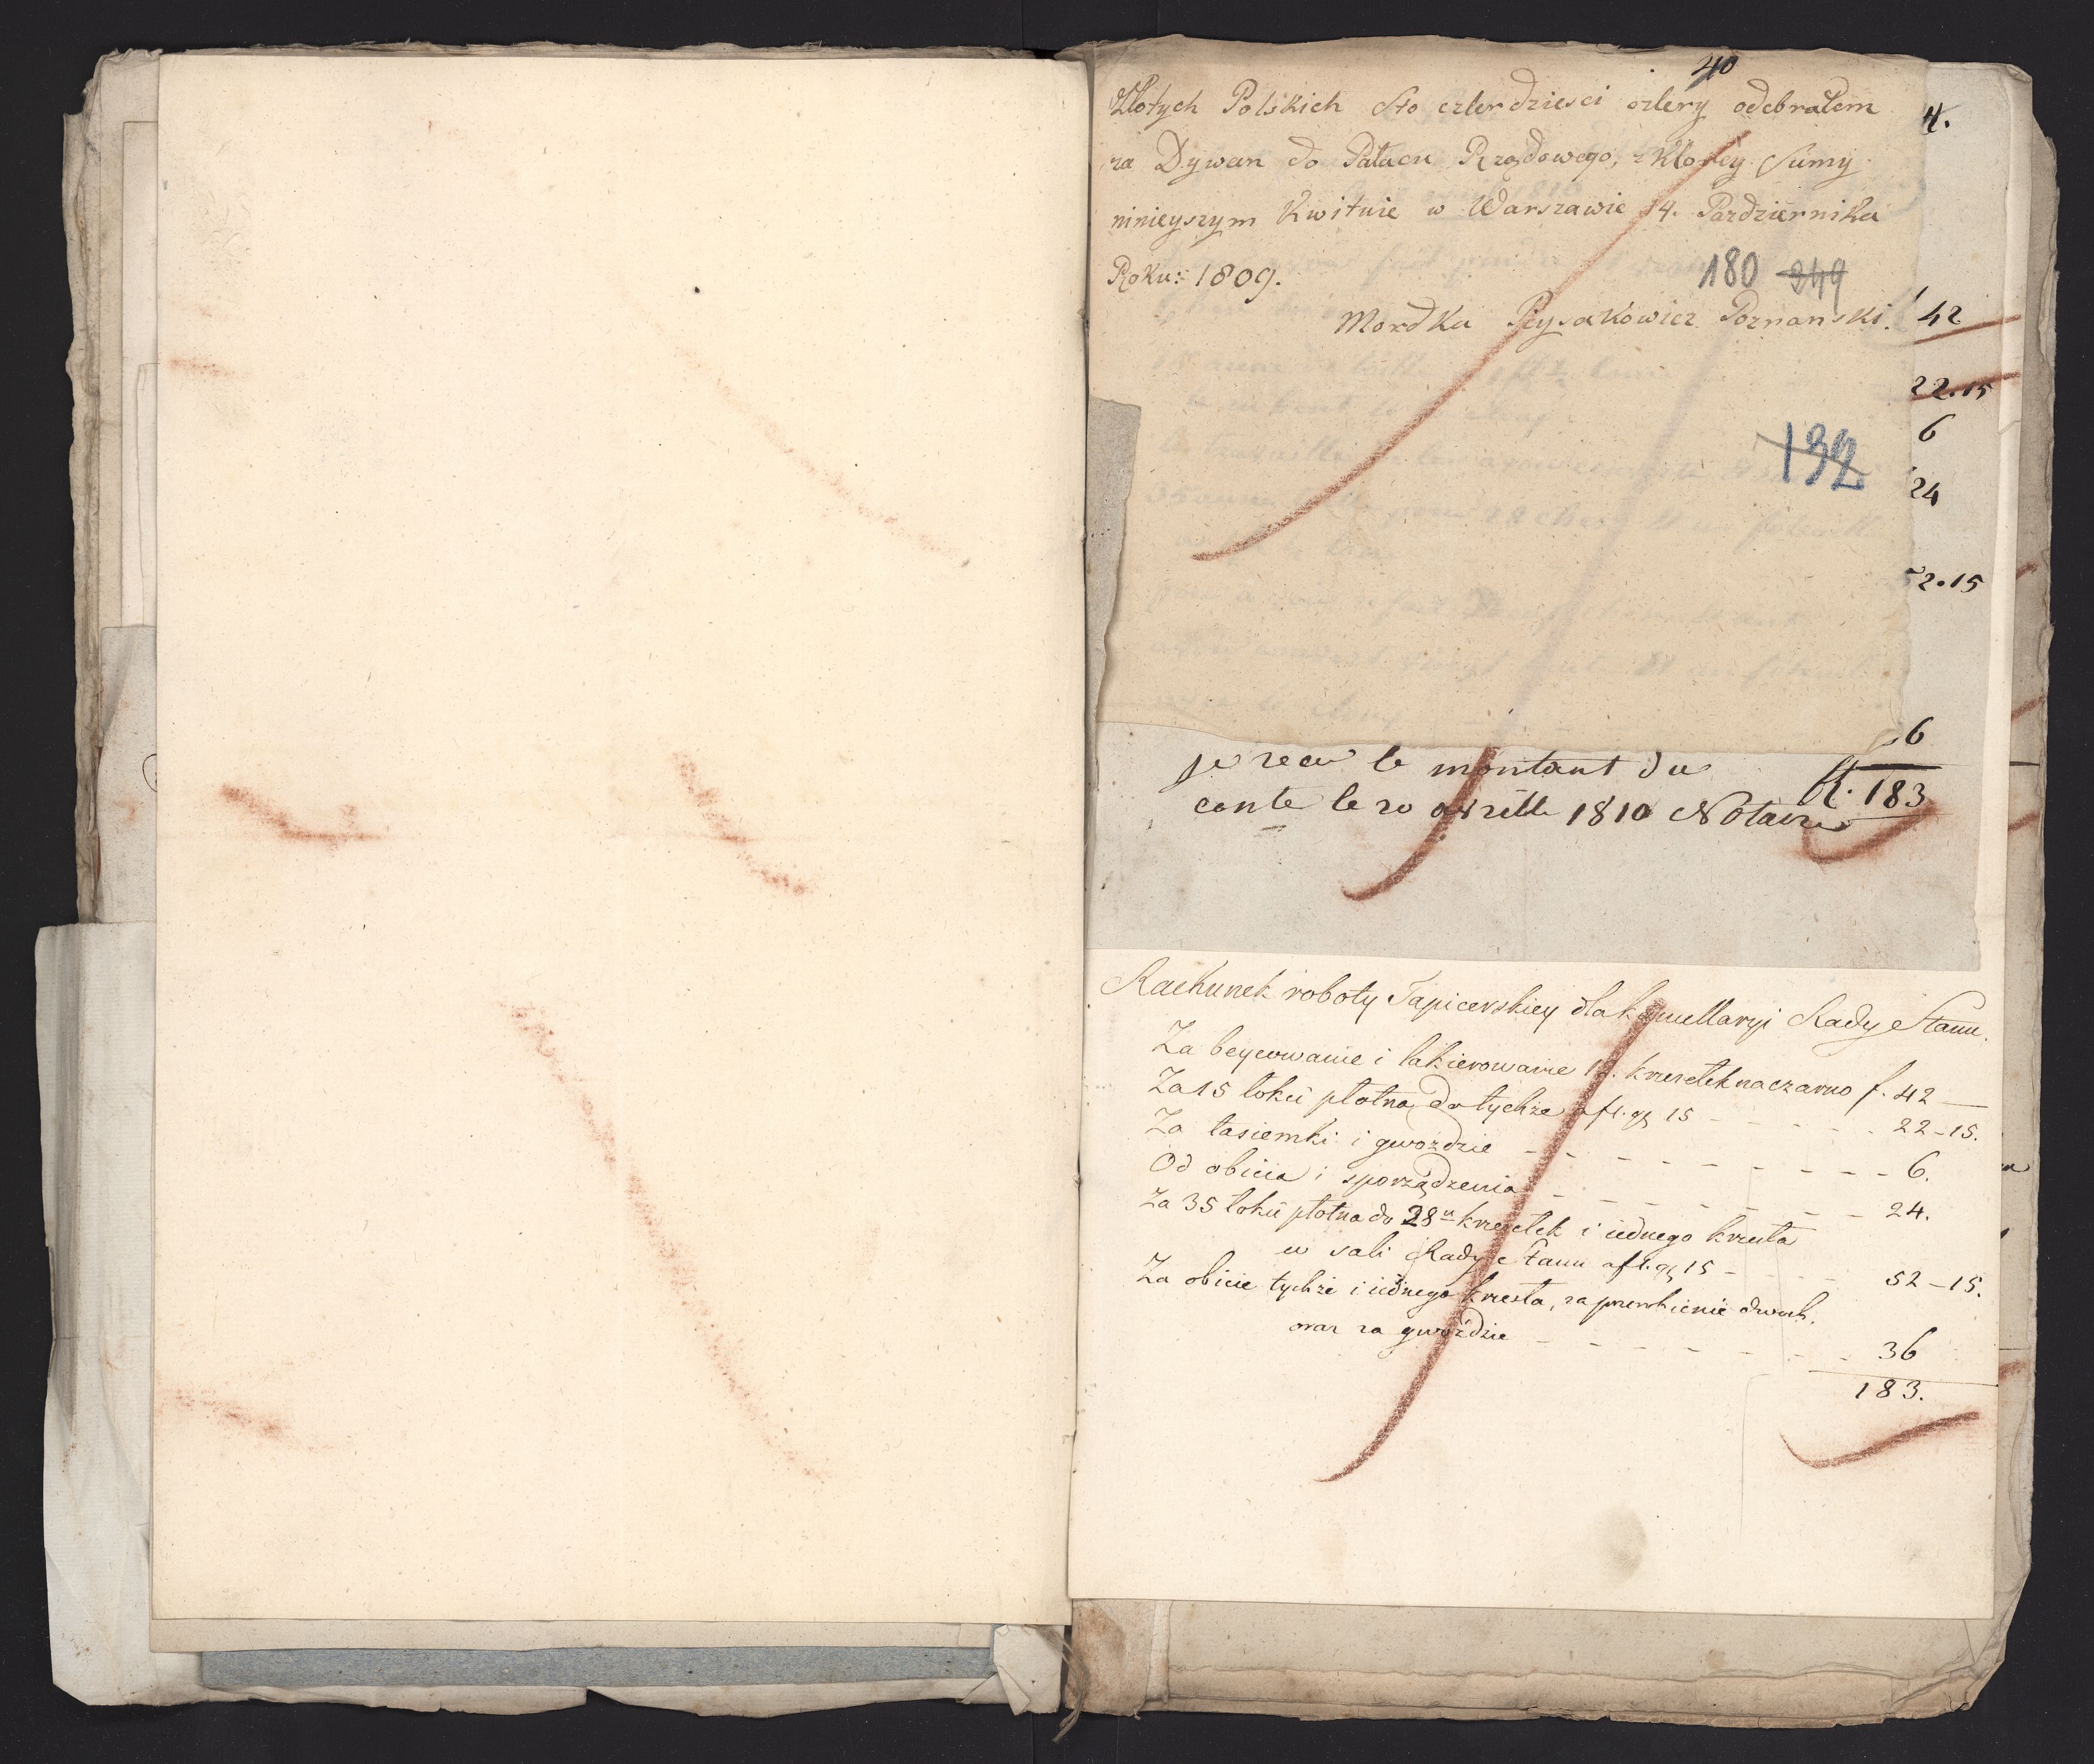 40
Złotych Polskich Sto czterdziesci cztery odebrałem
za Dywan do Pałacu Rządowego, z Ktorey Sumy
ninieyszym Kwituie w Warszawie 14. Pazdziernika
Roku: 1809.
180 349
Mordka Poznanski.
132
4.
42
22.15
6
24
52.15
6
je recu le montant du
fl. 183
conte le 20 avrille 1810 Notaire
Rachunek roboty Tapicerskiey dla kancellaryi Rady Stanu.
Za beycowanie i lakierowanie krzesełek na czarno f. 42 —
Za 15 łokci płotna do tychże a fl. gr 15 - - - - - 22-15.
Za tasiemki i gwozdzie - - - - - - - - - 6.
Od obicia i sporządzenia - - - - - - - 24.
Za 35 łokci płotna do 28u krzesełek i iednego krzesła
w sali Rady Stanu a fl. gr 15 - - - 52-15.
Za obicie tychże i iednego krzesła, za dwuch,
oraz za gwoździe - - - - - - - 36
183.